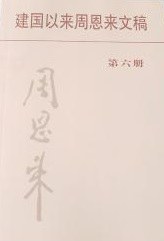 建国以来周恩来文稿
第六册
周恩来